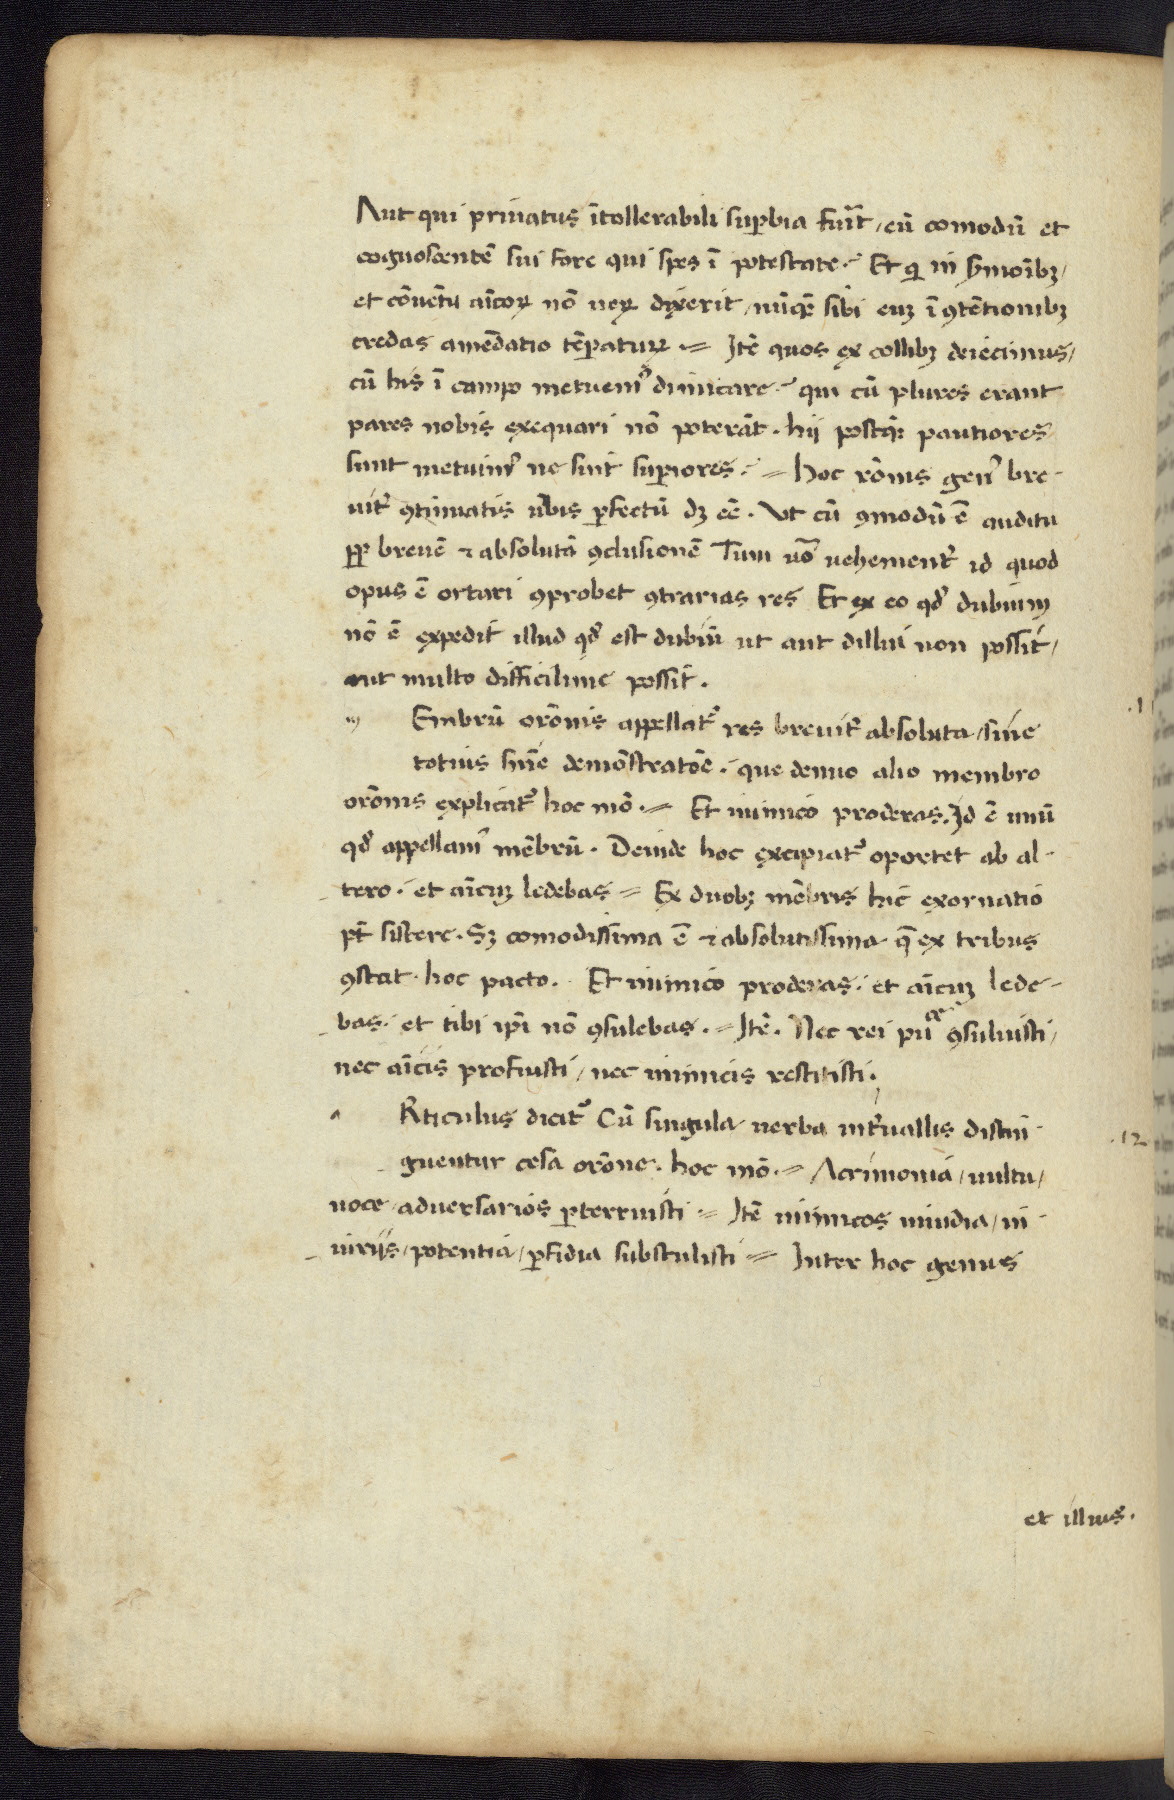 Aut qui priuatus ītollerabili suꝑbia fuit̄ / eū comodū et
cognoscentē sui fore qui spes ī potestate · Et qi in s̄monibꝫ /
et cōuentu amicoꝝ nō ueꝝ dixerit / nūqꝫ sibi euꝫ ī ꝯtētionibꝫ
credas amēdatio tēꝑaturꝫ · = Itē quos ex collibꝫ deiecimus /
cū his ī campo metuemꝰ dimicare · qui cū plures erant
pares nobis exequari nō poterāt · hij postqꝫ pautiores
sunt metuimꝰ ne sint suꝑiores · = Hoc rōnis genꝰ bre-
uit̉ ꝯtinuatis ūbis ꝑfectū dꝫ eē · Vt cū ꝯmodū ē auditu
ꝓp̄ breuē ⁊ absolutā ꝯclusionē Tum uō uehement̉ id quod
opus ē ortari ꝯprobet ꝯtrarias res Et ex eo qd̉ dubium
nō ē expedit̄ illud qd̉ est dubiū ut aut dillui non possit /
aut multo difficilime possit ·
m Embrū orōnis appellat̉ res breuit̉ absoluta / sine
totius sn̄ie demōstratōe · que denuo alio membro
orōnis explicat̉ hoc mō · = Et inimico proderas. Id ē unū
qd̉ appellamꝰ mēbrū · Deinde hoc excipiat̉ oportet ab al-
tero · et amicuꝫ ledebas = Ex duobꝫ mēbris hic exornatio
pt̄ sistere · Sꝫ comodissima ē ⁊ absolutissima q̄ ex tribus
ꝯstat · hoc pacto · Et inimico proderas · et amicuꝫ lede-
bas · et tibi ip̄i nō ꝯsulebas · = Itē · Nec rei pu ce ꝯsuluisti /
nec amicis profuisti / nec inimicis restitisti ·
.11
a Rticulus dicit̉ Cū singula verba int̉uallis distin-
guentur cesa orōne · hoc mō · = Acrimonia / uultu /
.12
uoce / adversarios ꝑterruisti = Itē inimicos inuidia / in-
iuriis / potentia / ꝑfidia substulisti = Inter hoc genus
et illius ·